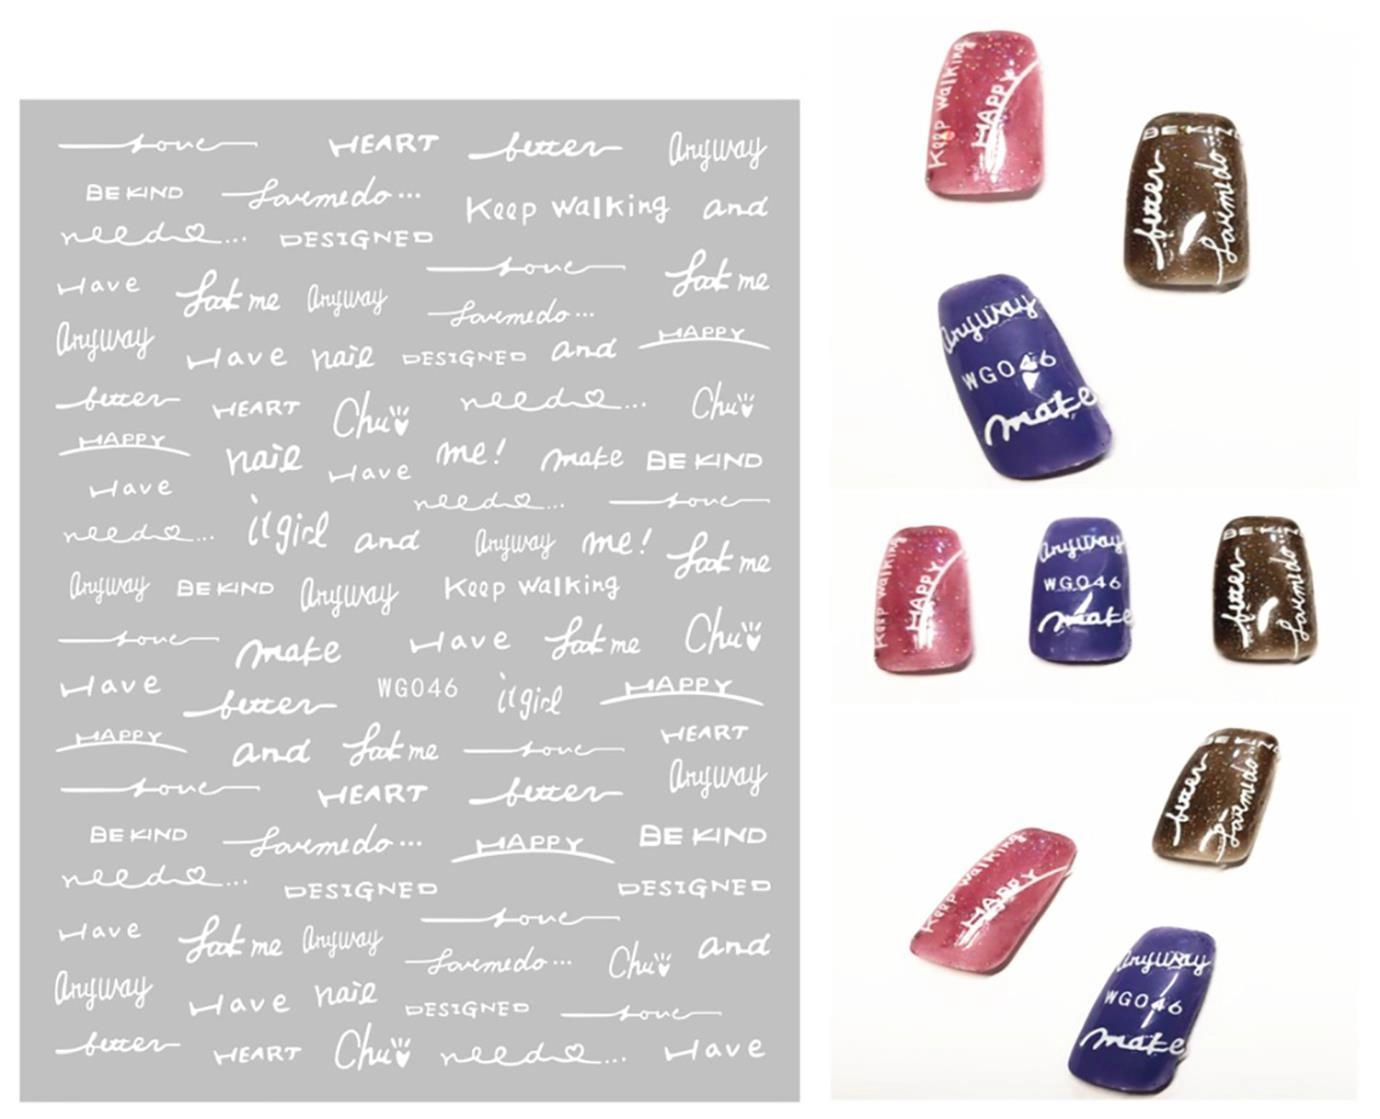 love HEART better Anyway
BE KIND Lovemedo... Keep walking and
need... DESIGNED
Have look me Anyway love look me
Lovemedo...
Anyway Have nail DESIGNED and HAPPY
better HEART Chu need... Chu
HAPPY nail Have me! make BE KIND
Have need... love
need... it girl and Anyway me! look me
Anyway BE KIND Anyway Keep walking
love make Have look me Chu
Have better WG046 it girl HAPPY
HAPPY and look me love HEART
love HEART better Anyway
BE KIND Lovemedo... HAPPY BE KIND
need... DESIGNED DESIGNED
Have look me Anyway love and
Lovemedo... Chu
Anyway Have nail DESIGNED love
better HEART Chu need... Have
Keep walking
HAPPY
BE KIND
better
Lovemedo
Anyway
WG046
make
Keep walking
HAPPY
Anyway
WG046
make
BE KIND
better
Lovemedo
BE KIND
better
Lovemedo
Keep walking
HAPPY
Anyway
WG046
make